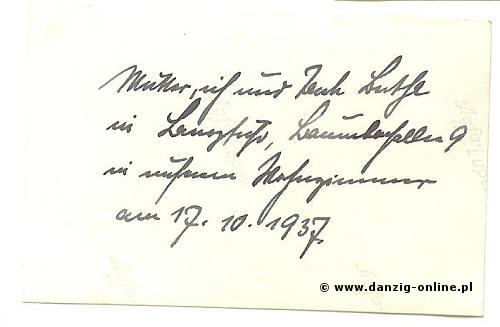 Mutter, ich und Tante
in Langfuhr, Baumbachallee 9
in unserem Wohnzimmer
am 17. 10. 1937.
© www.danzig-online.pl